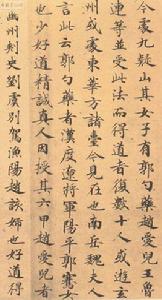 今處九疑山其女子有郭勺藥趙愛兒王魯
連等並受此法而得道者復數十人或遊玄
州或處東華方諸臺今見在也南岳魏夫人
言此云郭勺藥者漢度遼將軍陽平郭騫女
也少好道精誠真人因授其六甲趙愛兒者
幽州刺史劉虞別駕漁陽趙該姊也好道得